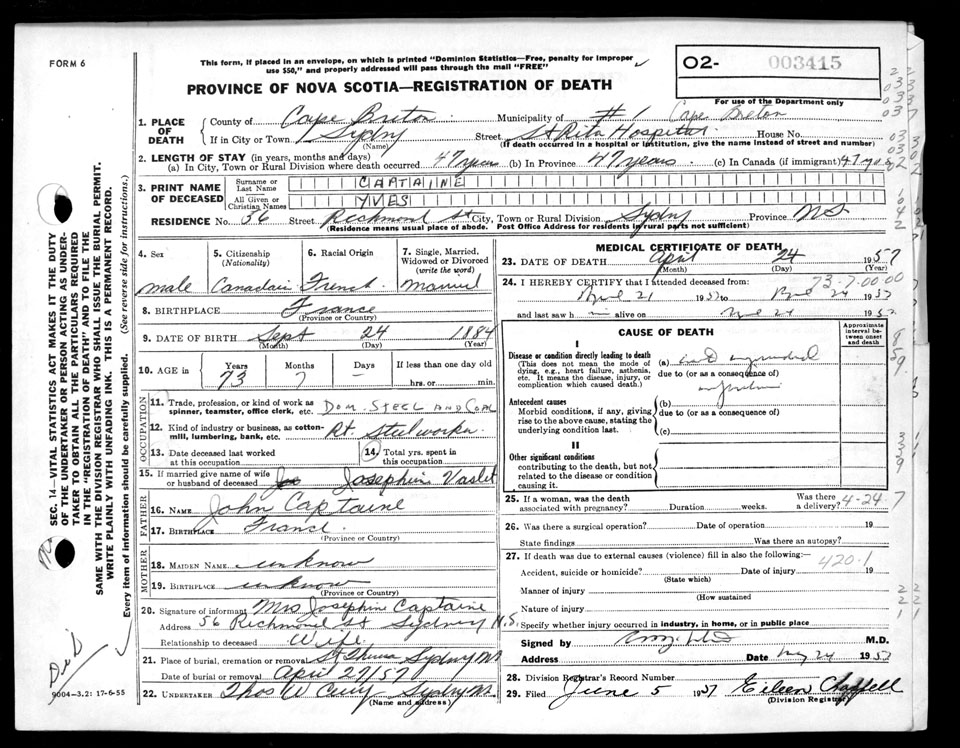 FORM 6
This form, if placed in an envelope, on which is printed "Dominion Statistics—Free, penalty for improper
use $50," and properly addressed will pass through the mail "FREE"
O2- 003415
For use of the Department only
PROVINCE OF NOVA SCOTIA—REGISTRATION OF DEATH
1. PLACE OF DEATH
County of Cape Breton Municipality of #1 Cape Breton
If in City or Town Sydny Street St Rita Hospital House No.
(Name) (If death occurred in a hospital or institution, give the name instead of street and number)
2. LENGTH OF STAY (in years, months and days)
(a) In City, Town or Rural Division where death occurred 47 years (b) In Province 47 years. (c) In Canada (if immigrant) 47 yrs
3. PRINT NAME OF DECEASED
Surname or Last Name CAPTAINE
All Given or Christian Names YVES
RESIDENCE No. 56 Street Richmond St City, Town or Rural Division Sydny Province NS
(Residence means usual place of abode. Post Office Address for residents in rural parts not sufficient)
4. Sex
male
5. Citizenship (Nationality)
Canadain
6. Racial Origin
French
7. Single, Married, Widowed or Divorced (write the word)
Married
8. BIRTHPLACE France
(Province or Country)
9. DATE OF BIRTH Sept 24 1884
(Month) (Day) (Year)
10. AGE in
Years 73
Months 7
Days –
If less than one day old
hrs. or min.
OCCUPATION
11. Trade, profession, or kind of work as spinner, teamster, office clerk, etc. DOM. STEEL AND COAL
12. Kind of industry or business, as cotton-mill, lumbering, bank, etc. Rt. Steelworker
13. Date deceased last worked at this occupation
14. Total yrs. spent in this occupation
15. If married give name of wife or husband of deceased Josephine Vaslet
FATHER
16. NAME John Captaine
17. BIRTHPLACE France.
(Province or Country)
MOTHER
18. MAIDEN NAME unknow
19. BIRTHPLACE unknow
(Province or Country)
20. Signature of informant Mrs Josephine Captaine
Address 56 Richmond St Sydney N.S.
Relationship to deceased Wife
21. Place of burial, cremation or removal Sydny NS
Date of burial or removal April 27/57
22. UNDERTAKER Thos W Curry Sydny NS.
(Name and address)
MEDICAL CERTIFICATE OF DEATH
23. DATE OF DEATH April 24 1957
(Month) (Day) (Year)
73-7-00-00
24. I HEREBY CERTIFY that I attended deceased from:
April 21 1957 to April 24 1957
and last saw him alive on April 24 1957
CAUSE OF DEATH
Approximate interval between onset and death
I
Disease or condition directly leading to death
(This does not mean the mode of dying, e.g., heart failure, asthenia, etc. It means the disease, injury, or complication which caused death.)
(a) myocardial
due to (or as a consequence of)
Antecedent causes
Morbid conditions, if any, giving rise to the above cause, stating the underlying condition last.
(b)
due to (or as a consequence of)
(c)
II
Other significant conditions
contributing to the death, but not related to the disease or condition causing it.
25. If a woman, was the death associated with pregnancy? Duration weeks. Was there a delivery? 4-24-7
26. Was there a surgical operation? Date of operation 19
State findings Was there an autopsy?
27. If death was due to external causes (violence) fill in also the following:—
420·1
Accident, suicide or homicide? Date of injury 19
(State which)
Manner of injury
(How sustained
Nature of injury
Specify whether injury occurred in industry, in home, or in public place
Signed by M.D.
Address Date 24 1957
28. Division Registrar's Record Number
29. Filed June 5 1957 Eileen Chappell
(Division Registrar)
SEC. 14—VITAL STATISTICS ACT MAKES IT THE DUTY
OF THE UNDERTAKER OR PERSON ACTING AS UNDER-
TAKER TO OBTAIN ALL THE PARTICULARS REQUIRED
IN THE "REGISTRATION OF DEATH" AND TO FILE THE
SAME WITH THE DIVISION REGISTRAR WHO SHALL ISSUE THE BURIAL PERMIT.
WRITE PLAINLY WITH UNFADING INK. THIS IS A PERMANENT RECORD.
Every item of information should be carefully supplied. (See reverse side for instructions.)
9004-3.2: 17-6-55